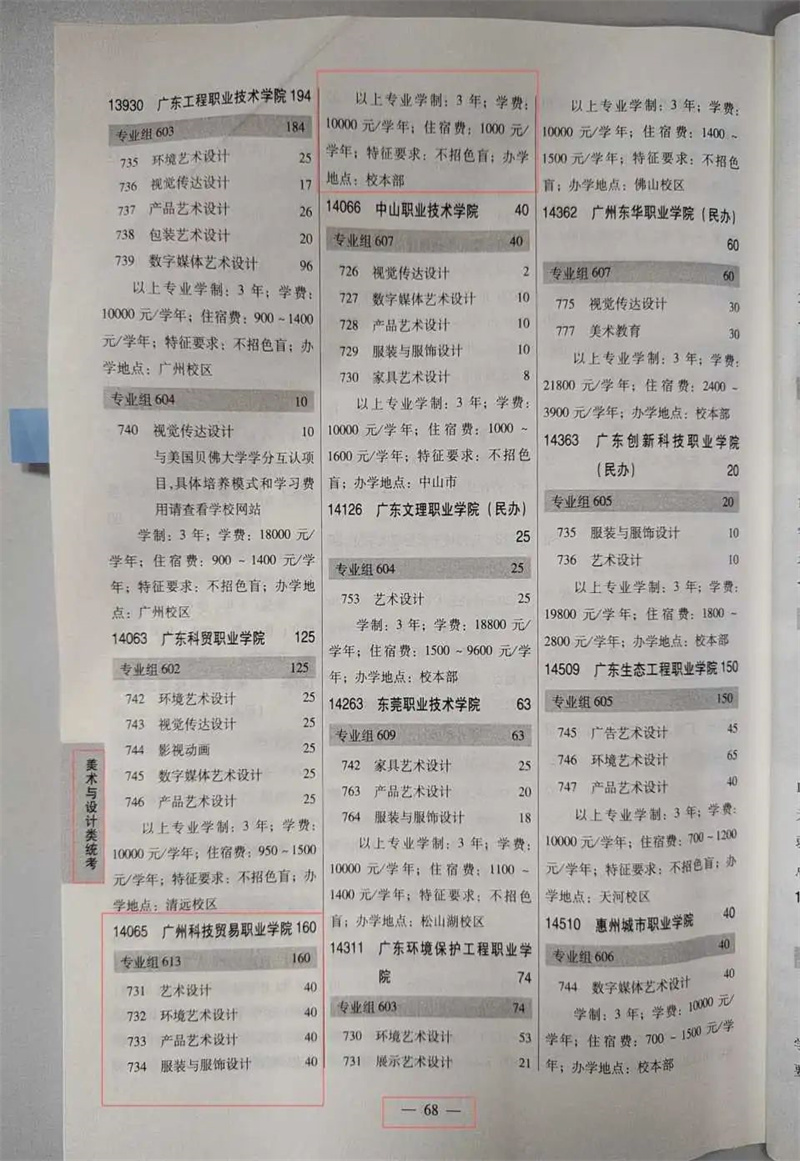 13930 广东工程职业技术学院 194
专业组 603 184
735 环境艺术设计 25
736 视觉传达设计 17
737 产品艺术设计 26
738 包装艺术设计 20
739 数字媒体艺术设计 96
以上专业学制：3 年；学费：
10000 元/学年；住宿费：900～1400
元/学年；特征要求：不招色盲；办
学地点：广州校区
专业组 604 10
740 视觉传达设计 10
与美国贝佛大学学分互认项
目,具体培养模式和学习费
用请查看学校网站
学制：3 年；学费：18000 元/
学年；住宿费：900～1400 元/学
年；特征要求：不招色盲；办学地
点：广州校区
14063 广东科贸职业学院 125
专业组 602 125
742 环境艺术设计 25
743 视觉传达设计 25
744 影视动画 25
745 数字媒体艺术设计 25
746 产品艺术设计 25
以上专业学制：3 年；学费：
10000 元/学年；住宿费：950～1500
元/学年；特征要求：不招色盲；办
学地点：清远校区
14065 广州科技贸易职业学院 160
专业组 613 160
731 艺术设计 40
732 环境艺术设计 40
733 产品艺术设计 40
734 服装与服饰设计 40
美术与设计类统考
以上专业学制：3 年；学费：
10000 元/学年；住宿费：1000 元/
学年；特征要求：不招色盲；办学
地点：校本部
14066 中山职业技术学院 40
专业组 607 40
726 视觉传达设计 2
727 数字媒体艺术设计 10
728 产品艺术设计 10
729 服装与服饰设计 10
730 家具艺术设计 8
以上专业学制：3 年；学费：
10000 元/学年；住宿费：1000～
1600 元/学年；特征要求：不招色
盲；办学地点：中山市
14126 广东文理职业学院（民办）
25
专业组 604 25
753 艺术设计 25
学制：3 年；学费：18800 元/
学年；住宿费：1500～9600 元/学
年；办学地点：校本部
14263 东莞职业技术学院 63
专业组 609 63
742 家具艺术设计 25
763 产品艺术设计 20
764 服装与服饰设计 18
以上专业学制：3 年；学费：
10000 元/学年；住宿费：1100～
1400 元/学年；特征要求：不招色
盲；办学地点：松山湖校区
14311 广东环境保护工程职业学
院 74
专业组 603 74
730 环境艺术设计 53
731 展示艺术设计 21
以上专业学制：3 年；学费：
10000 元/学年；住宿费：1400～
1500 元/学年；特征要求：不招色
盲；办学地点：佛山校区
14362 广州东华职业学院（民办）
60
专业组 607 60
775 视觉传达设计 30
777 美术教育 30
以上专业学制：3 年；学费：
21800 元/学年；住宿费：2400～
3900 元/学年；办学地点：校本部
14363 广东创新科技职业学院
（民办） 20
专业组 605 20
735 服装与服饰设计 10
736 艺术设计 10
以上专业学制：3 年；学费：
19800 元/学年；住宿费：1800～
2800 元/学年；办学地点：校本部
14509 广东生态工程职业学院 150
专业组 605 150
745 广告艺术设计 45
746 环境艺术设计 65
747 产品艺术设计 40
以上专业学制：3 年；学费：
10000 元/学年；住宿费：700～1200
元/学年；特征要求：不招色盲；办
学地点：天河校区
14510 惠州城市职业学院 40
专业组 606 40
744 数字媒体艺术设计 40
学制：3 年；学费：10000 元/
学年；住宿费：700～1500 元/学
年；办学地点：校本部
— 68 —